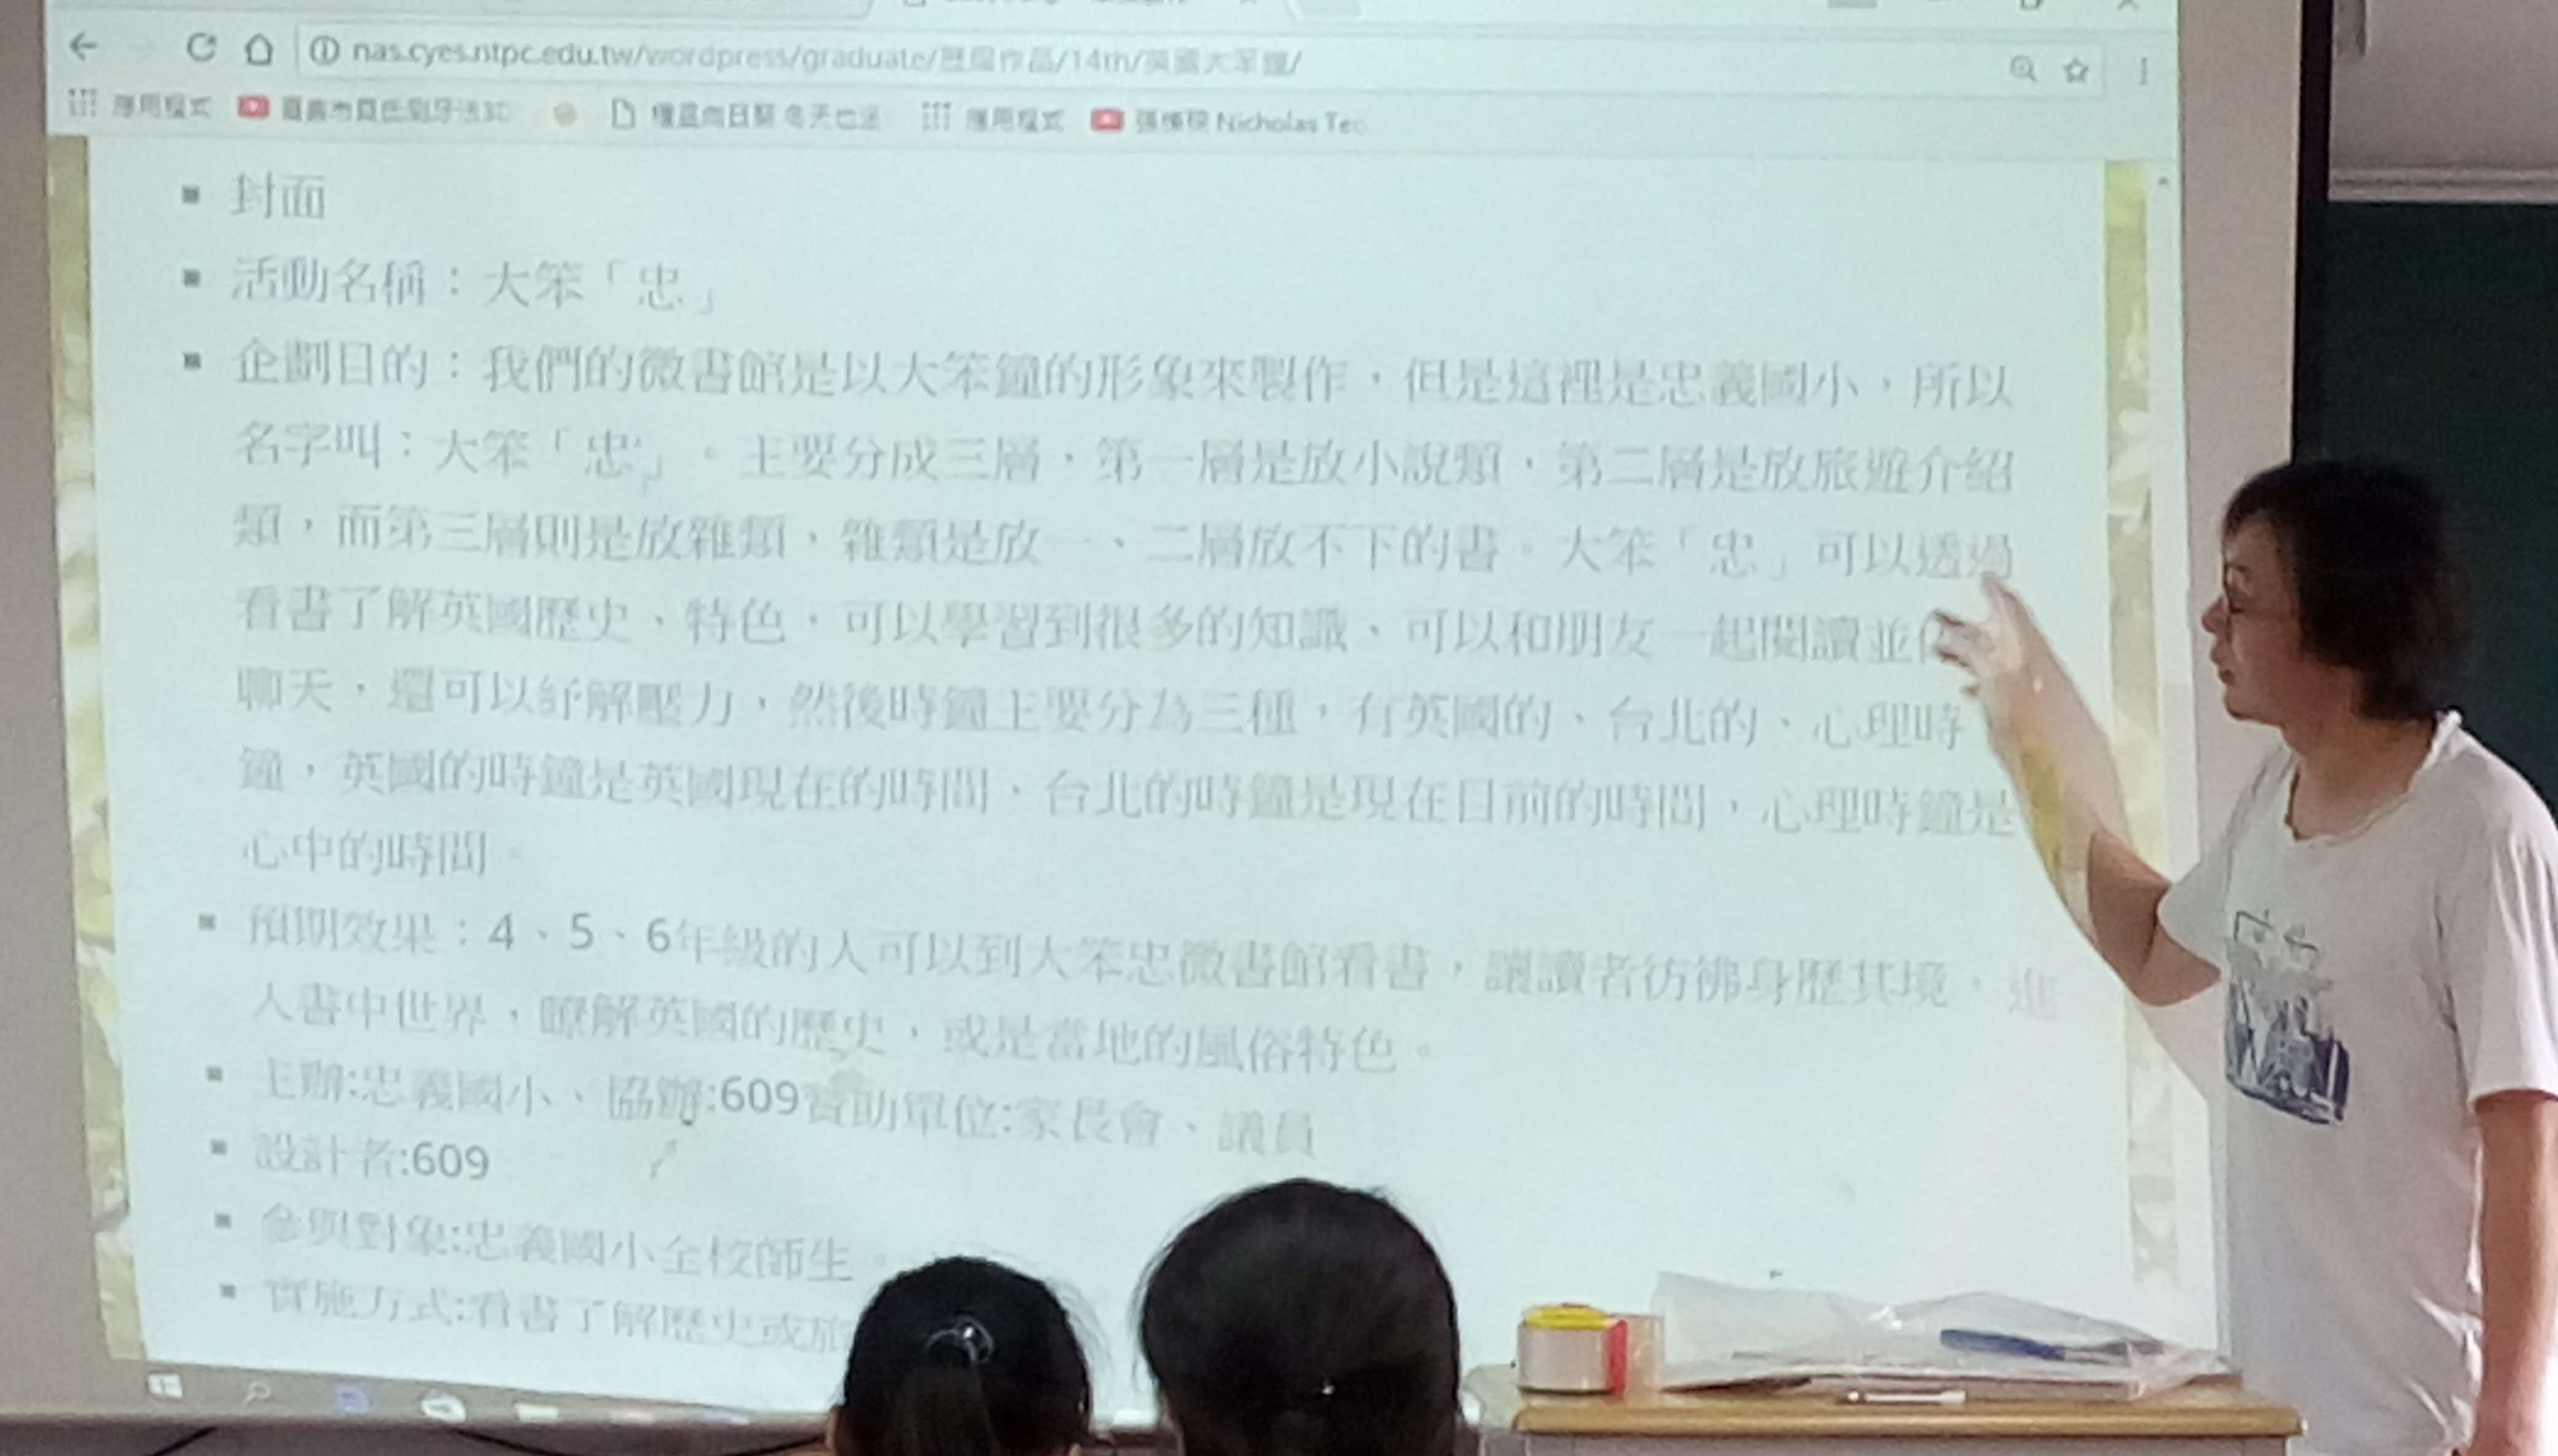 nas.cyes.ntpc.edu.tw/wordpress/graduate/歷屆作品/14th/英國大笨鐘/
應用程式
應用程式
Nicholas Teo
封面
活動名稱：大笨「忠」
企劃目的：我們的微書館是以大笨鐘的形象來製作，但是這裡是忠義國小，所以
名字叫：大笨「忠」。主要分成三層，第一層是放小說類，第二層是放旅遊介紹
類，而第三層則是放雜類，雜類是放一、二層放不下的書。大笨「忠」可以透過
看書了解英國歷史、特色，可以學習到很多的知識、可以和朋友一起閱讀並
聊天，還可以紓解壓力，然後時鐘主要分為三種，有英國的、台北的、心理時
鐘，英國的時鐘是英國現在的時間、台北的時鐘是現在目前的時間，心理時鐘是
心中的時間。
預期效果：4、5、6年級的人可以到大笨忠微書館看書，讓讀者彷彿身歷其境，進
入書中世界，瞭解英國的歷史，或是當地的風俗特色。
主辦:忠義國小、協辦:609贊助單位:家長會、議員
設計者:609
參與對象:忠義國小全校師生。
實施方式:看書了解歷史或旅